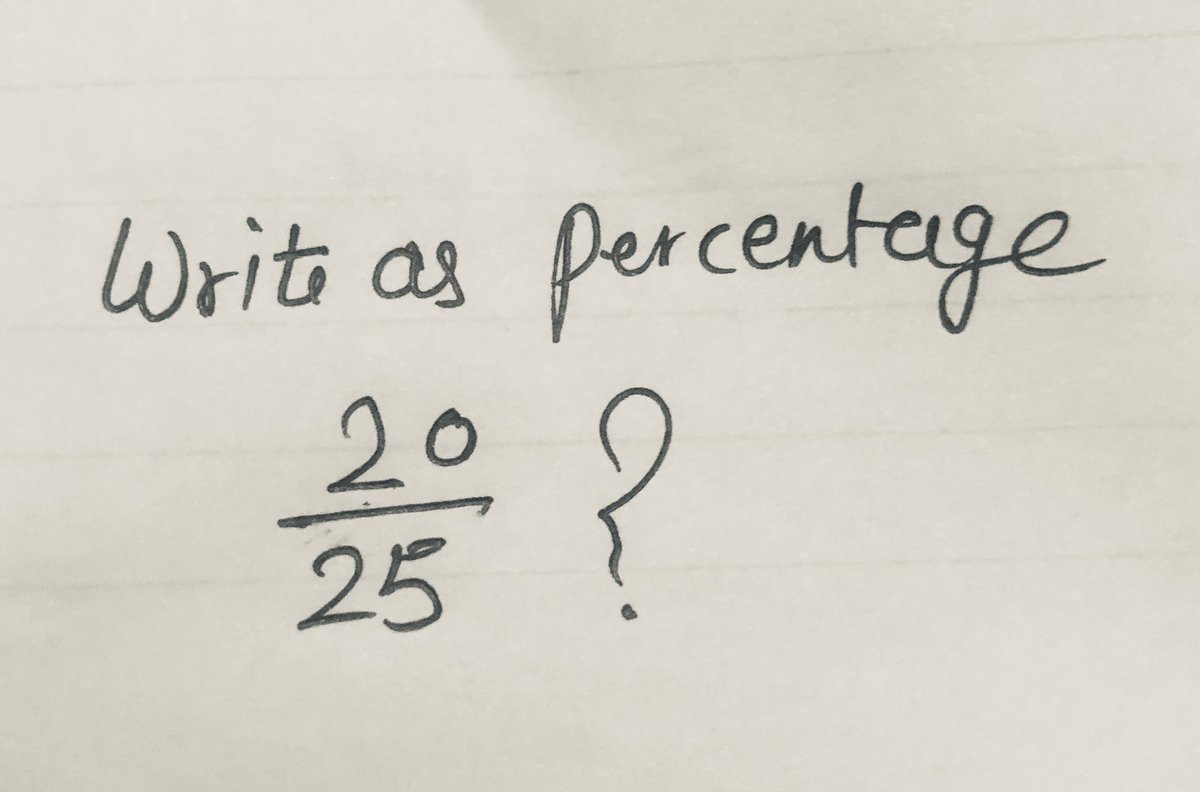 Write as percentage
20
25 ?